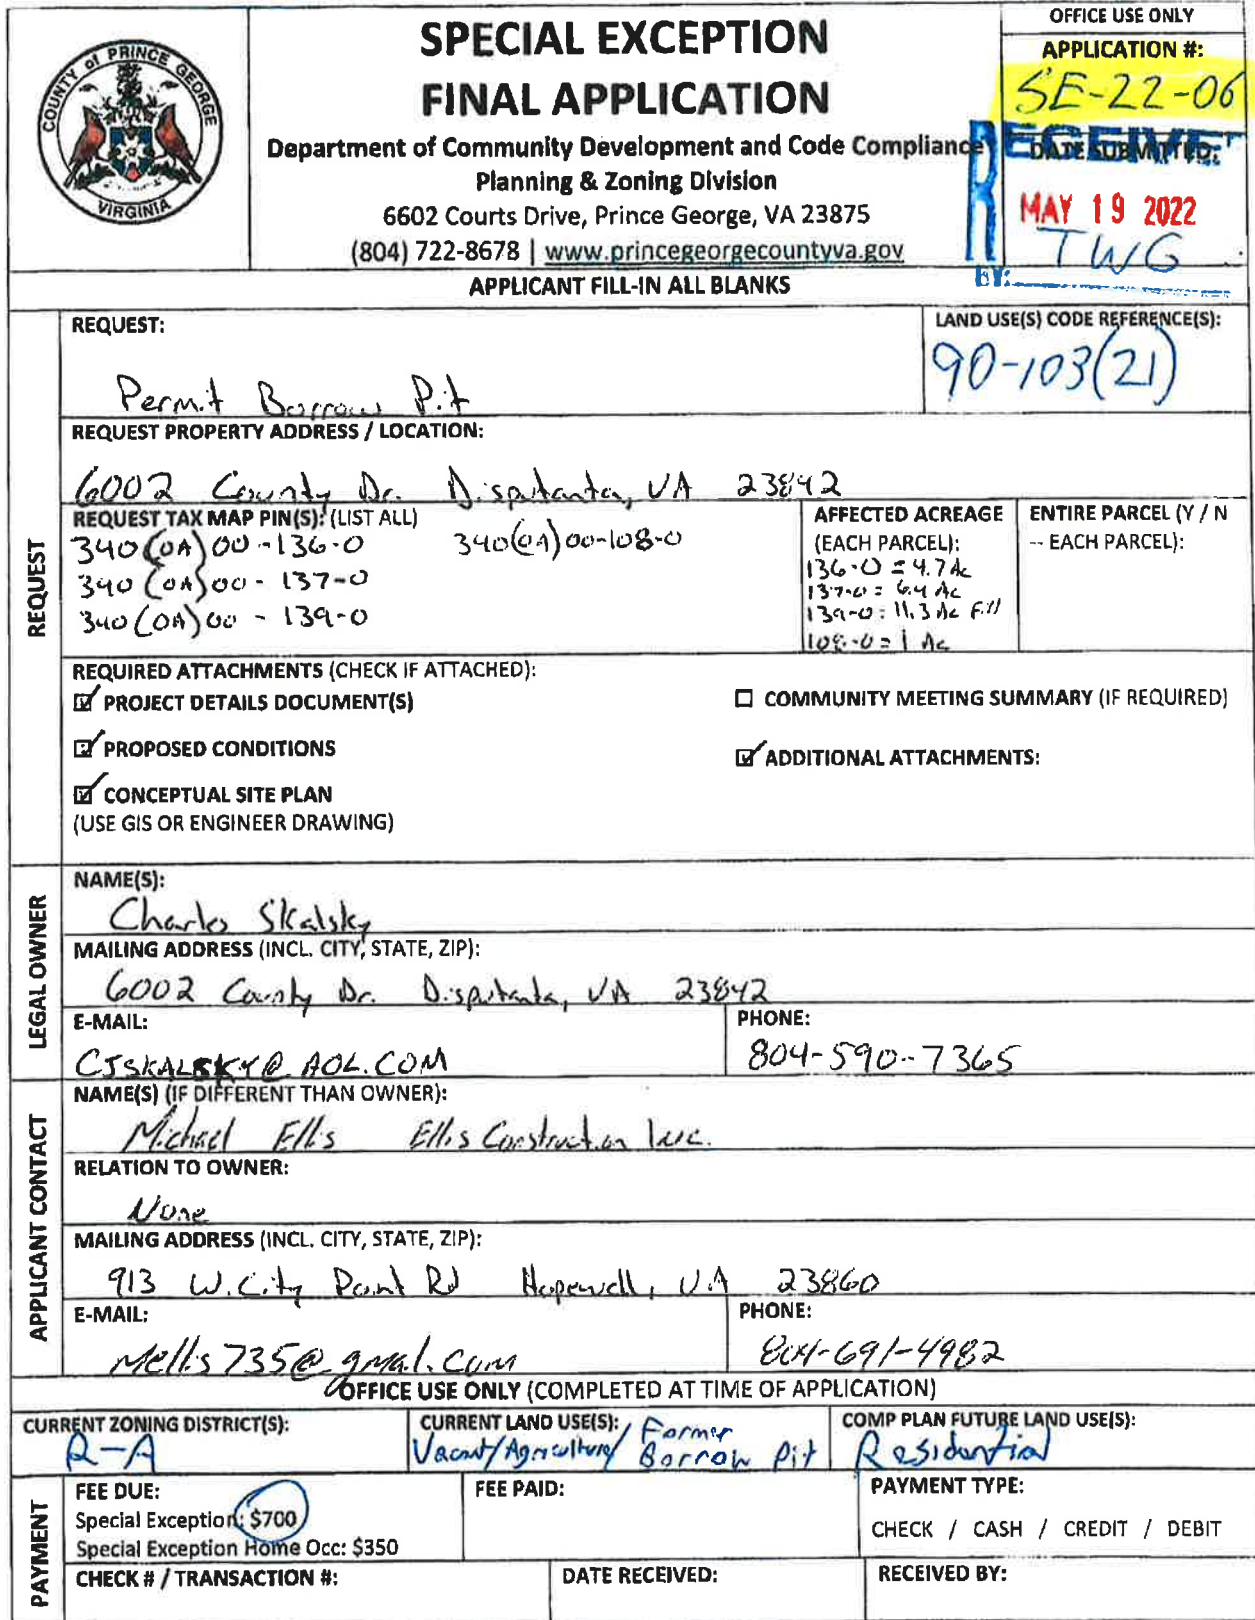 COUNTY of PRINCE GEORGE
VIRGINIA
SPECIAL EXCEPTION
FINAL APPLICATION
Department of Community Development and Code Compliance
Planning & Zoning Division
6602 Courts Drive, Prince George, VA 23875
(804) 722-8678 | www.princegeorgecountyva.gov
OFFICE USE ONLY
APPLICATION #:
SE-22-06
RECEIVE
DATE SUBMITTED:
MAY 19 2022
TWG
BY:
APPLICANT FILL-IN ALL BLANKS
REQUEST
REQUEST:
Permit Borrow Pit
LAND USE(S) CODE REFERENCE(S):
90-103(21)
REQUEST PROPERTY ADDRESS / LOCATION:
6002 County Dr. Disputanta, VA 23842
REQUEST TAX MAP PIN(S): (LIST ALL)
340(0A)00-136-0 340(0A)00-108-0
340(0A)00-137-0
340(0A)00-139-0
AFFECTED ACREAGE
(EACH PARCEL):
136-0 = 4.7 Ac
137-0 = 6.4 Ac
139-0: 11.3 Ac Fill
108-0 = 1 Ac
ENTIRE PARCEL (Y / N
-- EACH PARCEL):
REQUIRED ATTACHMENTS (CHECK IF ATTACHED):
☑ PROJECT DETAILS DOCUMENT(S)
☐ COMMUNITY MEETING SUMMARY (IF REQUIRED)
☑ PROPOSED CONDITIONS
☑ ADDITIONAL ATTACHMENTS:
☑ CONCEPTUAL SITE PLAN
(USE GIS OR ENGINEER DRAWING)
LEGAL OWNER
NAME(S):
Charles Skalsky
MAILING ADDRESS (INCL. CITY, STATE, ZIP):
6002 County Dr. Disputanta, VA 23842
E-MAIL:
CJSKALSKY@AOL.COM
PHONE:
804-590-7365
APPLICANT CONTACT
NAME(S) (IF DIFFERENT THAN OWNER):
Michael Ellis Ellis Construction Inc.
RELATION TO OWNER:
None
MAILING ADDRESS (INCL. CITY, STATE, ZIP):
913 W. City Point Rd Hopewell, VA 23860
E-MAIL:
Mellis735@gmail.com
PHONE:
804-691-4982
OFFICE USE ONLY (COMPLETED AT TIME OF APPLICATION)
CURRENT ZONING DISTRICT(S):
R-A
CURRENT LAND USE(S):
Vacant/Agriculture/ Former Borrow Pit
COMP PLAN FUTURE LAND USE(S):
Residential
PAYMENT
FEE DUE:
Special Exception: $700
Special Exception Home Occ: $350
FEE PAID:
PAYMENT TYPE:
CHECK / CASH / CREDIT / DEBIT
CHECK # / TRANSACTION #:
DATE RECEIVED:
RECEIVED BY: